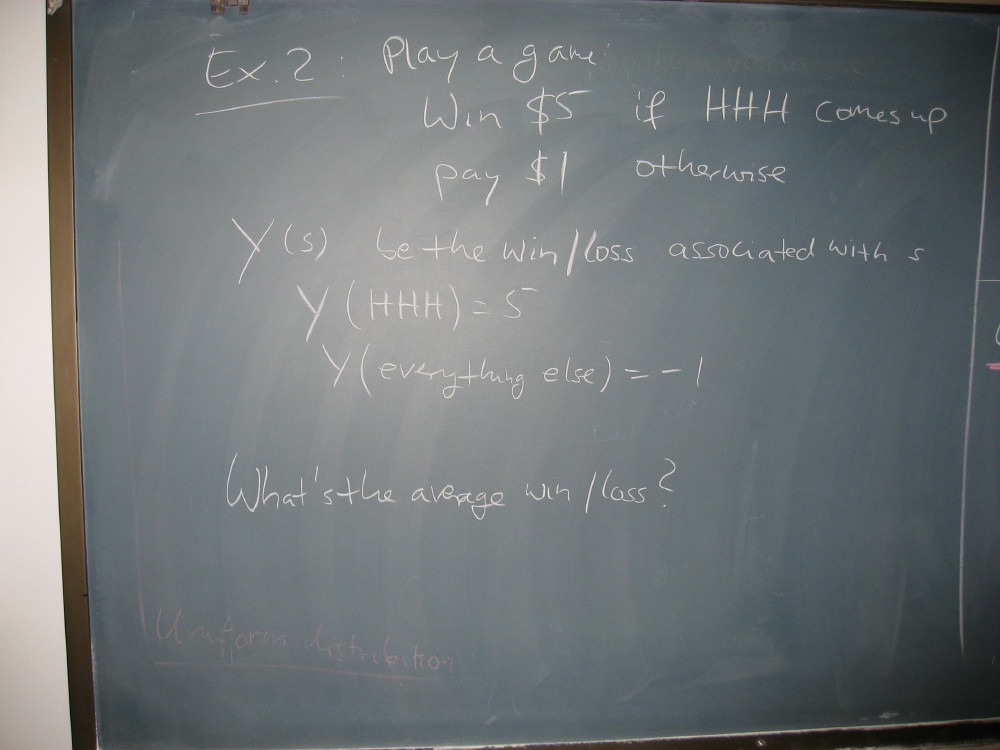 Ex. 2 : Play a game:
Win $5 if HHH comes up
pay $1 otherwise
Y(s) be the win/loss associated with s
Y(HHH) = 5
Y(everything else) = -1
What's the average win/loss?
Uniform distribution